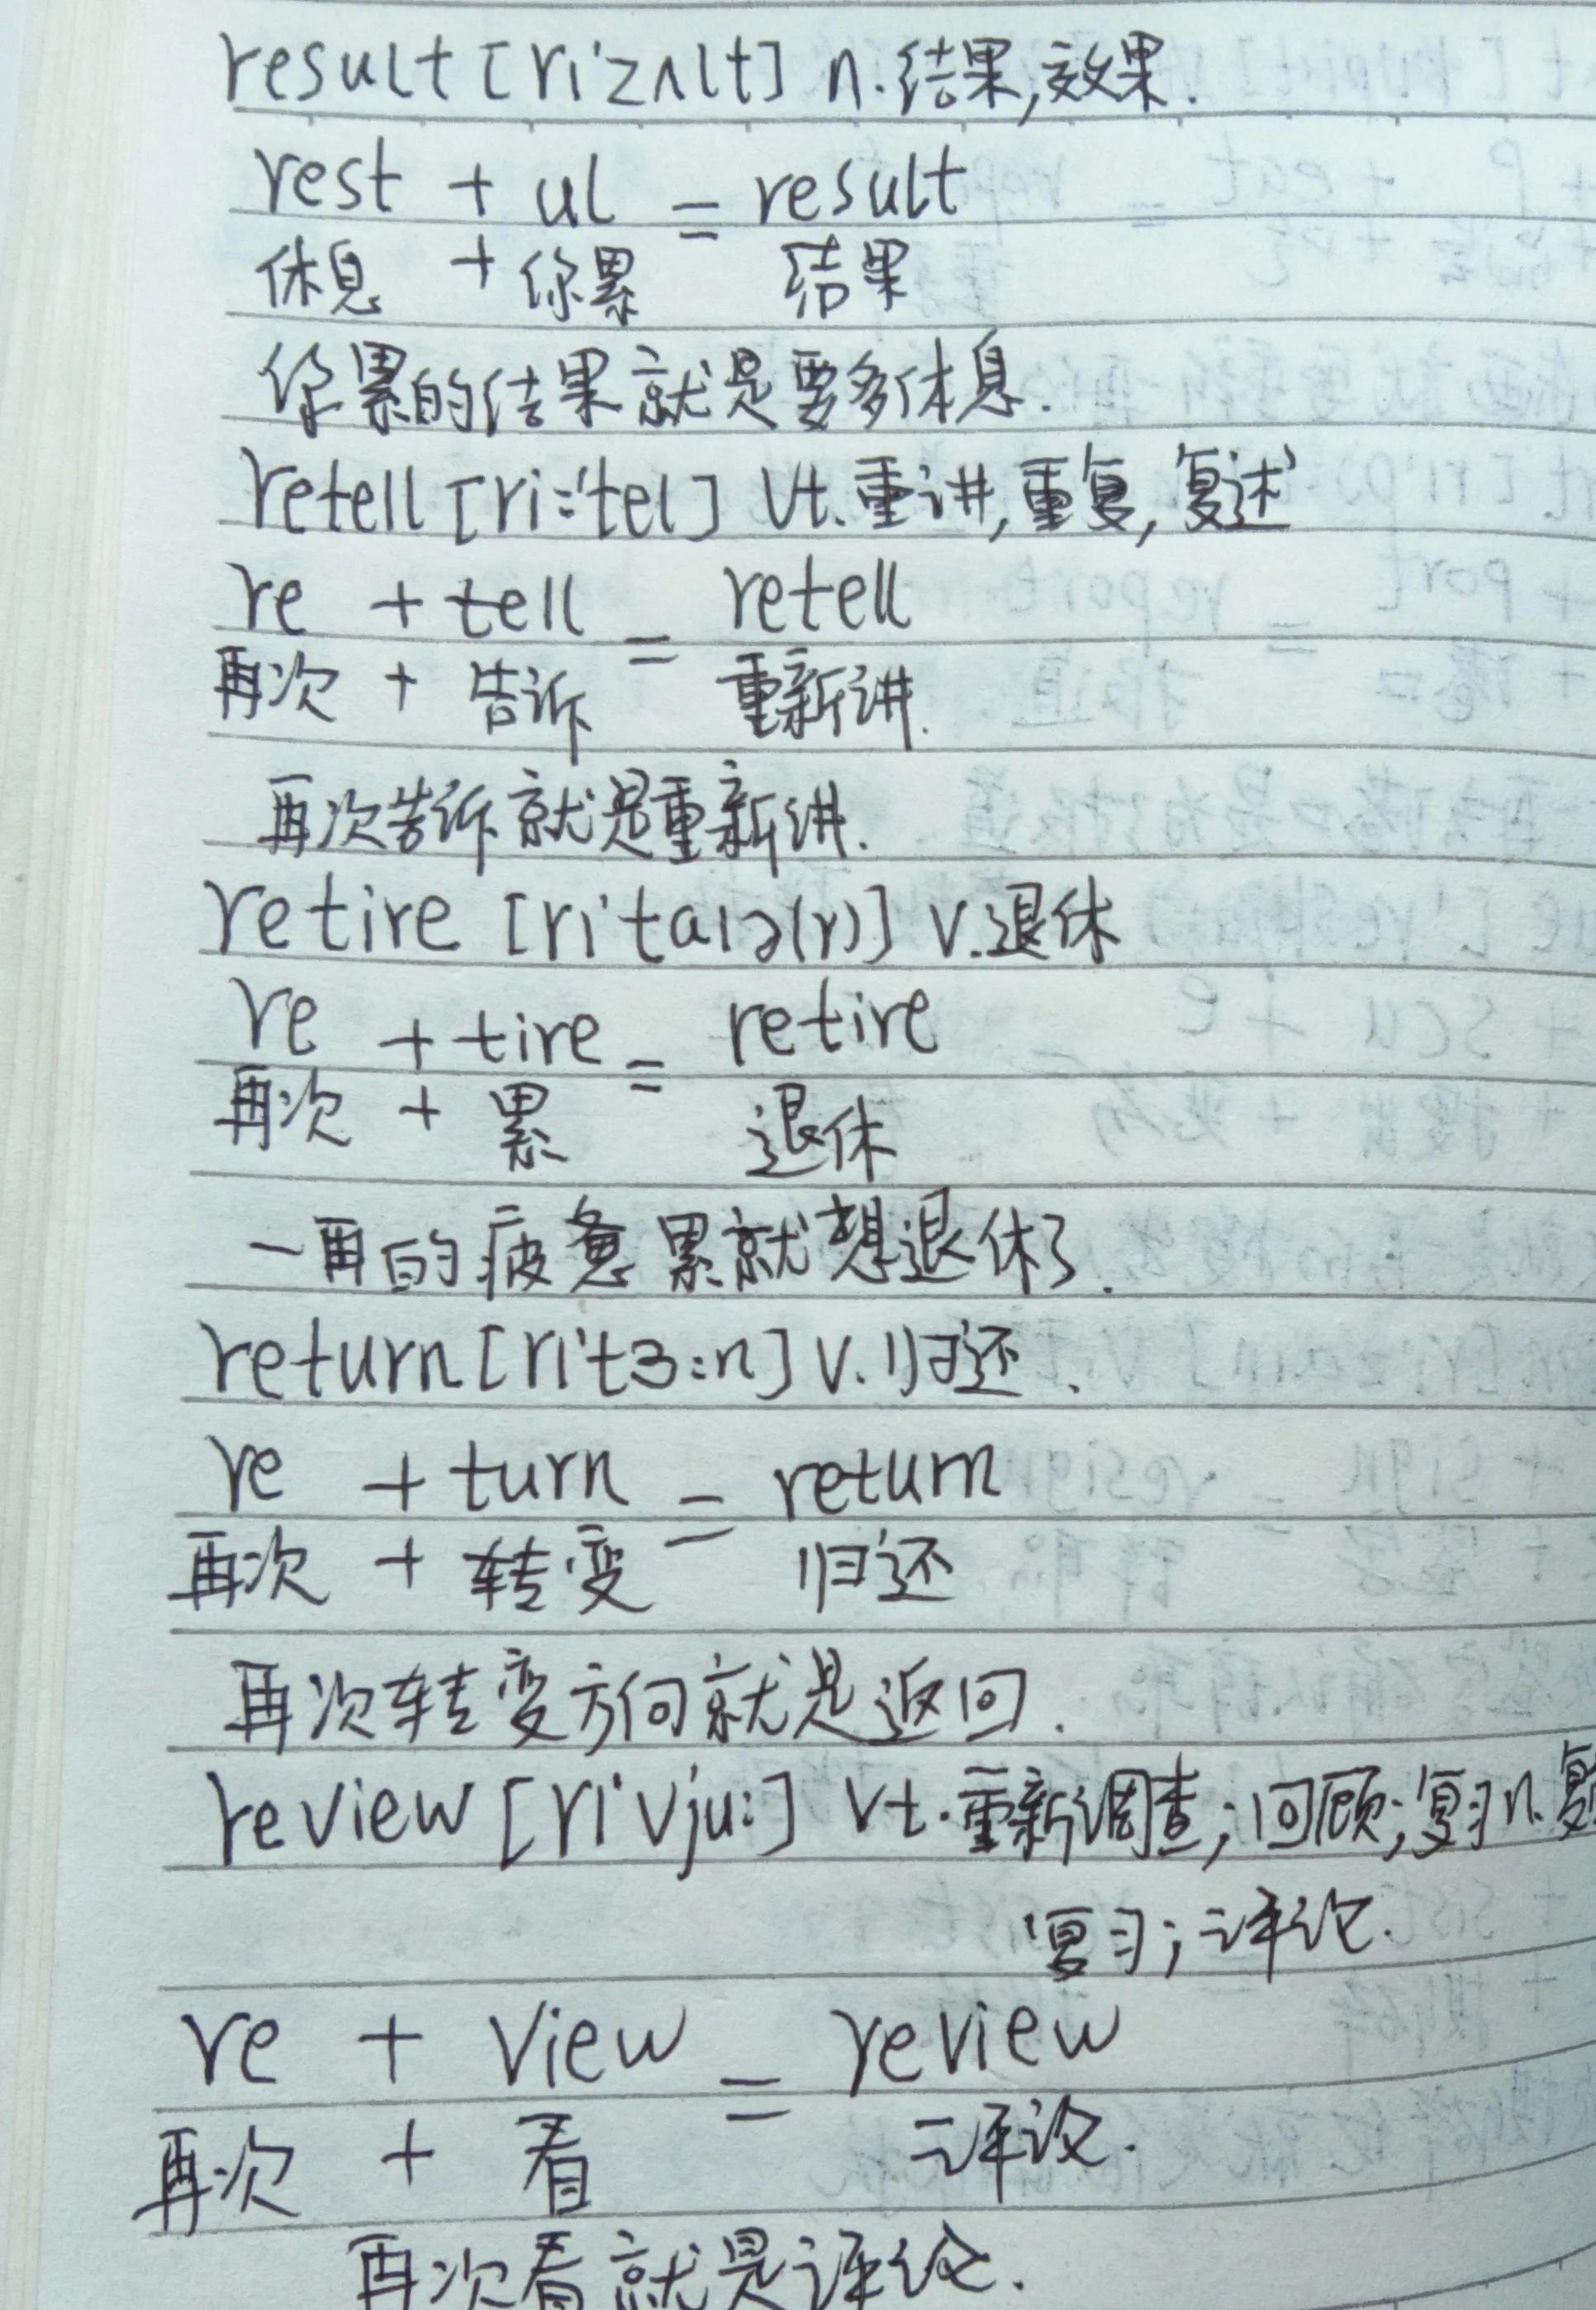 result [ri'zʌlt] n.结果,效果.
rest + ul = result
休息 + 你累 结果
你累的结果就是要多休息.
retell [ri:'tel] vt.重讲,重复,复述
re + tell = retell
再次 + 告诉 重新讲.
再次告诉就是重新讲.
retire [ri'taiə(r)] v.退休
re + tire = retire
再次 + 累 退休
一再的疲惫累就想退休了.
return [ri't3:n] v.归还.
re + turn = return
再次 + 转变 归还
再次转变方向就是返回.
review [ri'vju:] vt.重新调查;回顾;复习n.复
复习;评论.
re + view = review
再次 + 看 评论.
再次看就是评论.